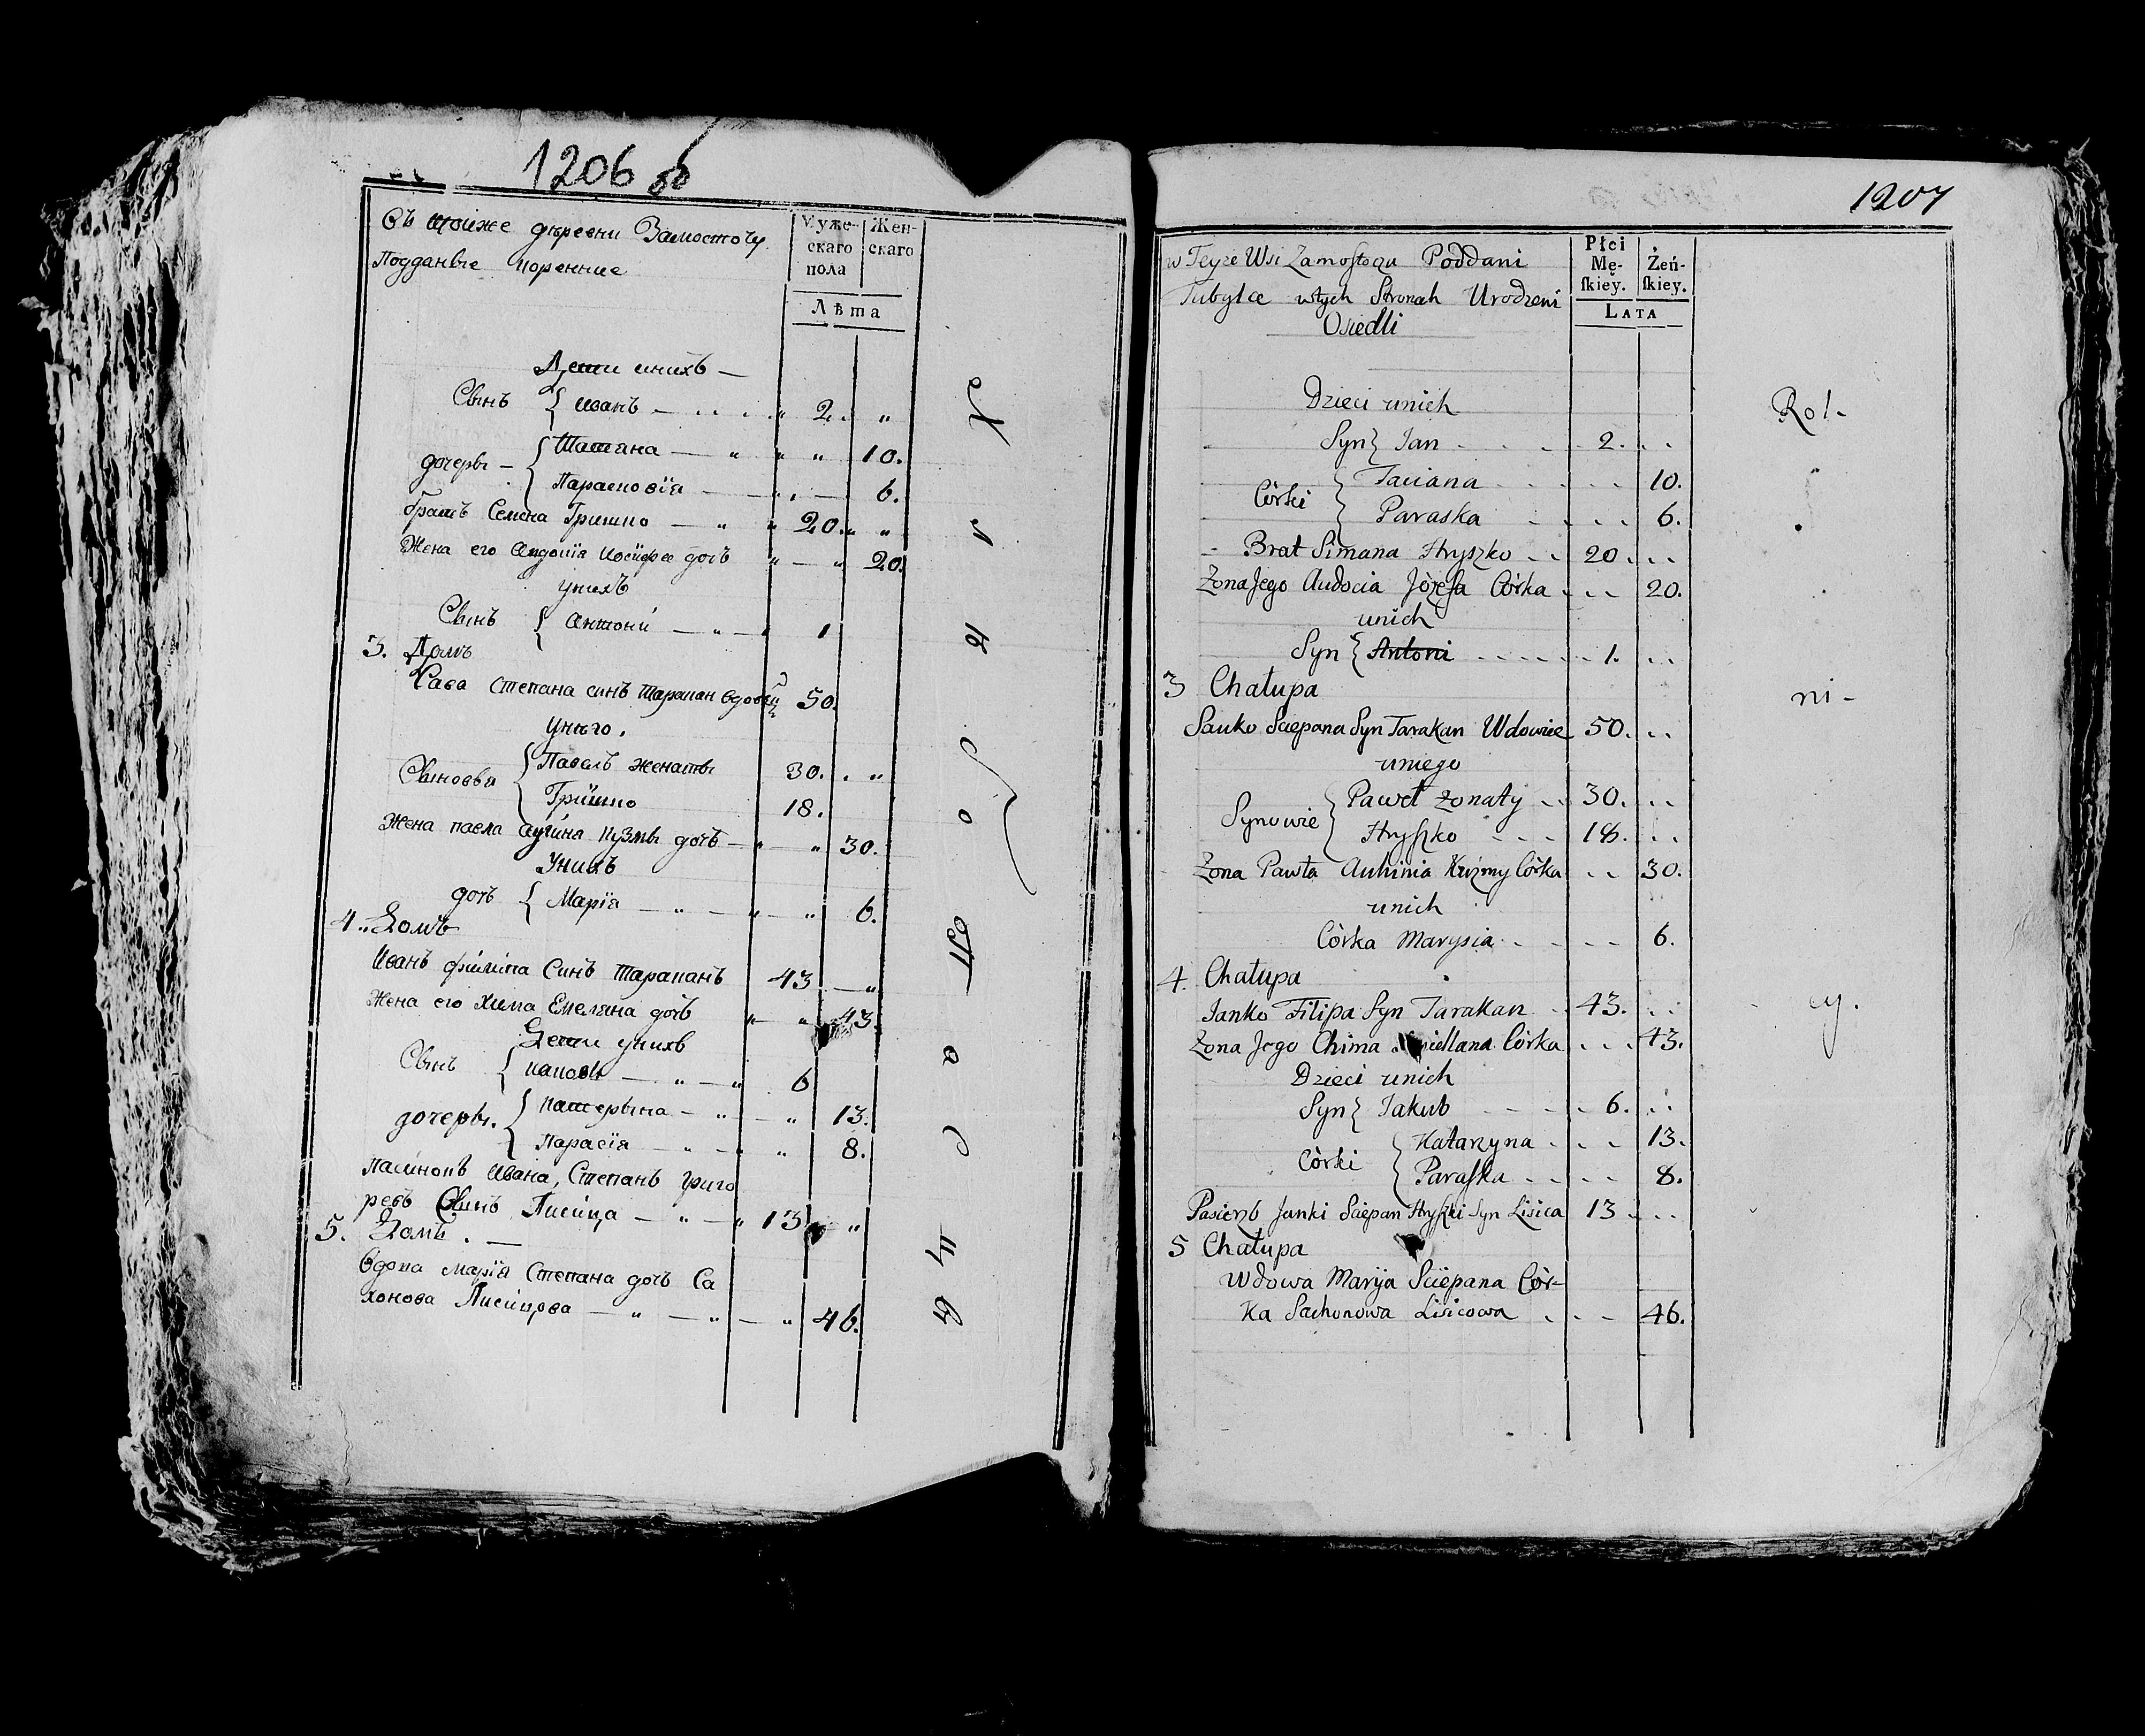 1206 об
Въ тойже деревни Замосточу
Подданые коренные
Муже-
скаго
пола
Жен-
скаго
Лѣта
Дети унихъ —
Сынъ { Иванъ — 2. "
дочеры — { Татяна — " " " 10.
Парасковія — 6.
братъ Семена Гришко — " 20. "
Жена его Авдокія Іосифа дочъ " — " 20.
унихъ
Сынъ { Антони — " — 1
3. Домъ
Сава Степана синъ Таракан вдовый 50.
унего.
Сыновья { Павелъ женаты 30. "
Гришко 18.
Жена павла Аугіна Кузмы дочъ — " 30.
Унихъ
дочъ { Марія — " — " — " 6.
4. Домъ
Иванъ филипа Синъ Тараканъ 43 — "
Жена его Хима Емеляна дочъ " — " 43.
Дети унихъ
Сынъ { Иаковъ — " — " 6
дочеры. { Катерына — " — " 13.
Парасія — " — " " 8.
Пасинокъ Ивана, Степанъ Григо
ревъ Сынъ Лисица — " — " 13 "
5. Домъ. —
Вдова Марія Степана дочъ Са
хонова Лисицова — " — " — " 46.
1207
w Teyże Wsi Zamostoczu Poddani
Tubylce wtych Stronah Urodzeni
Osiedli
Płci
Mę-
ſkiey.
Żeń-
ſkiey.
LATA
Dzieci unich
Syn { Jan 2.
Córki { Taciana 10.
Paraska 6.
Brat Simana Hryszko 20.
Zona Jego Audocia Józefa Córka 20.
unich
Syn { Antoni 1.
3 Chałupa
Sauko Sciepana Syn Tarakan Wdowiec 50.
uniego
Synowie { Paweł żonaty 30.
Hryszko 18.
Żona Pawła Auhinia Kuzmy Córka 30.
unich
Córka Marysia 6.
4. Chałupa
Janko Filipa Syn Tarakan 43.
Zona Jego Chima Córka 43.
Dzieci unich
Syn { Jakub 6.
Córki { Katarzyna 13.
Paraska 8.
Pasierzb Janki Sciepan Hryszki Syn Lisica 13
5 Chałupa
Wdowa Maryja Sciepana Cór-
ka Sachonowa Lisicowa 46.
Rol-
ni-
cy.